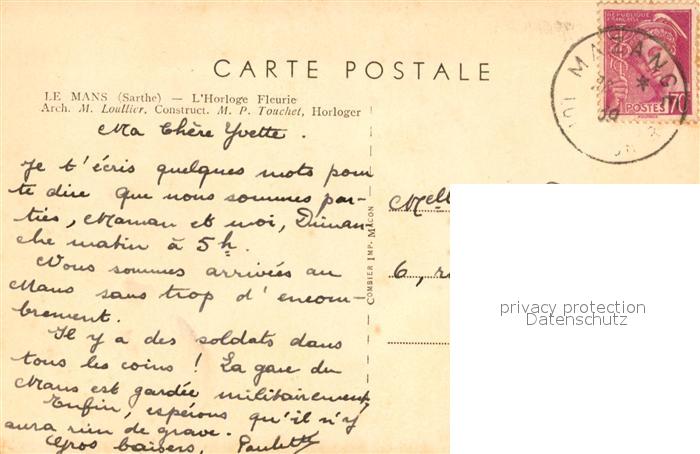 CARTE POSTALE
LE MANS (Sarthe) — L'Horloge Fleurie
Arch. M. Loullier, Construct. M. P. Touchet, Horloger
Ma Chère Yvette.
Je t'écris quelques mots pour
te dire que nous sommes par-
ties, Maman et moi, Diman-
che matin à 5h.
Nous sommes arrivées au
Mans sans trop d'encom-
brement.
Il y a des soldats dans
tous les coins ! La gare du
Mans est gardée militairement,
Enfin, espérons qu'il n'y
aura rien de grave.
Gros baisers, Paulette
COMBIER IMP. MACON
Mell
6, r
RÉPUBLIQUE
FRANÇAISE
POSTES 70
MAZANGÉ
39
privacy protection
Datenschutz